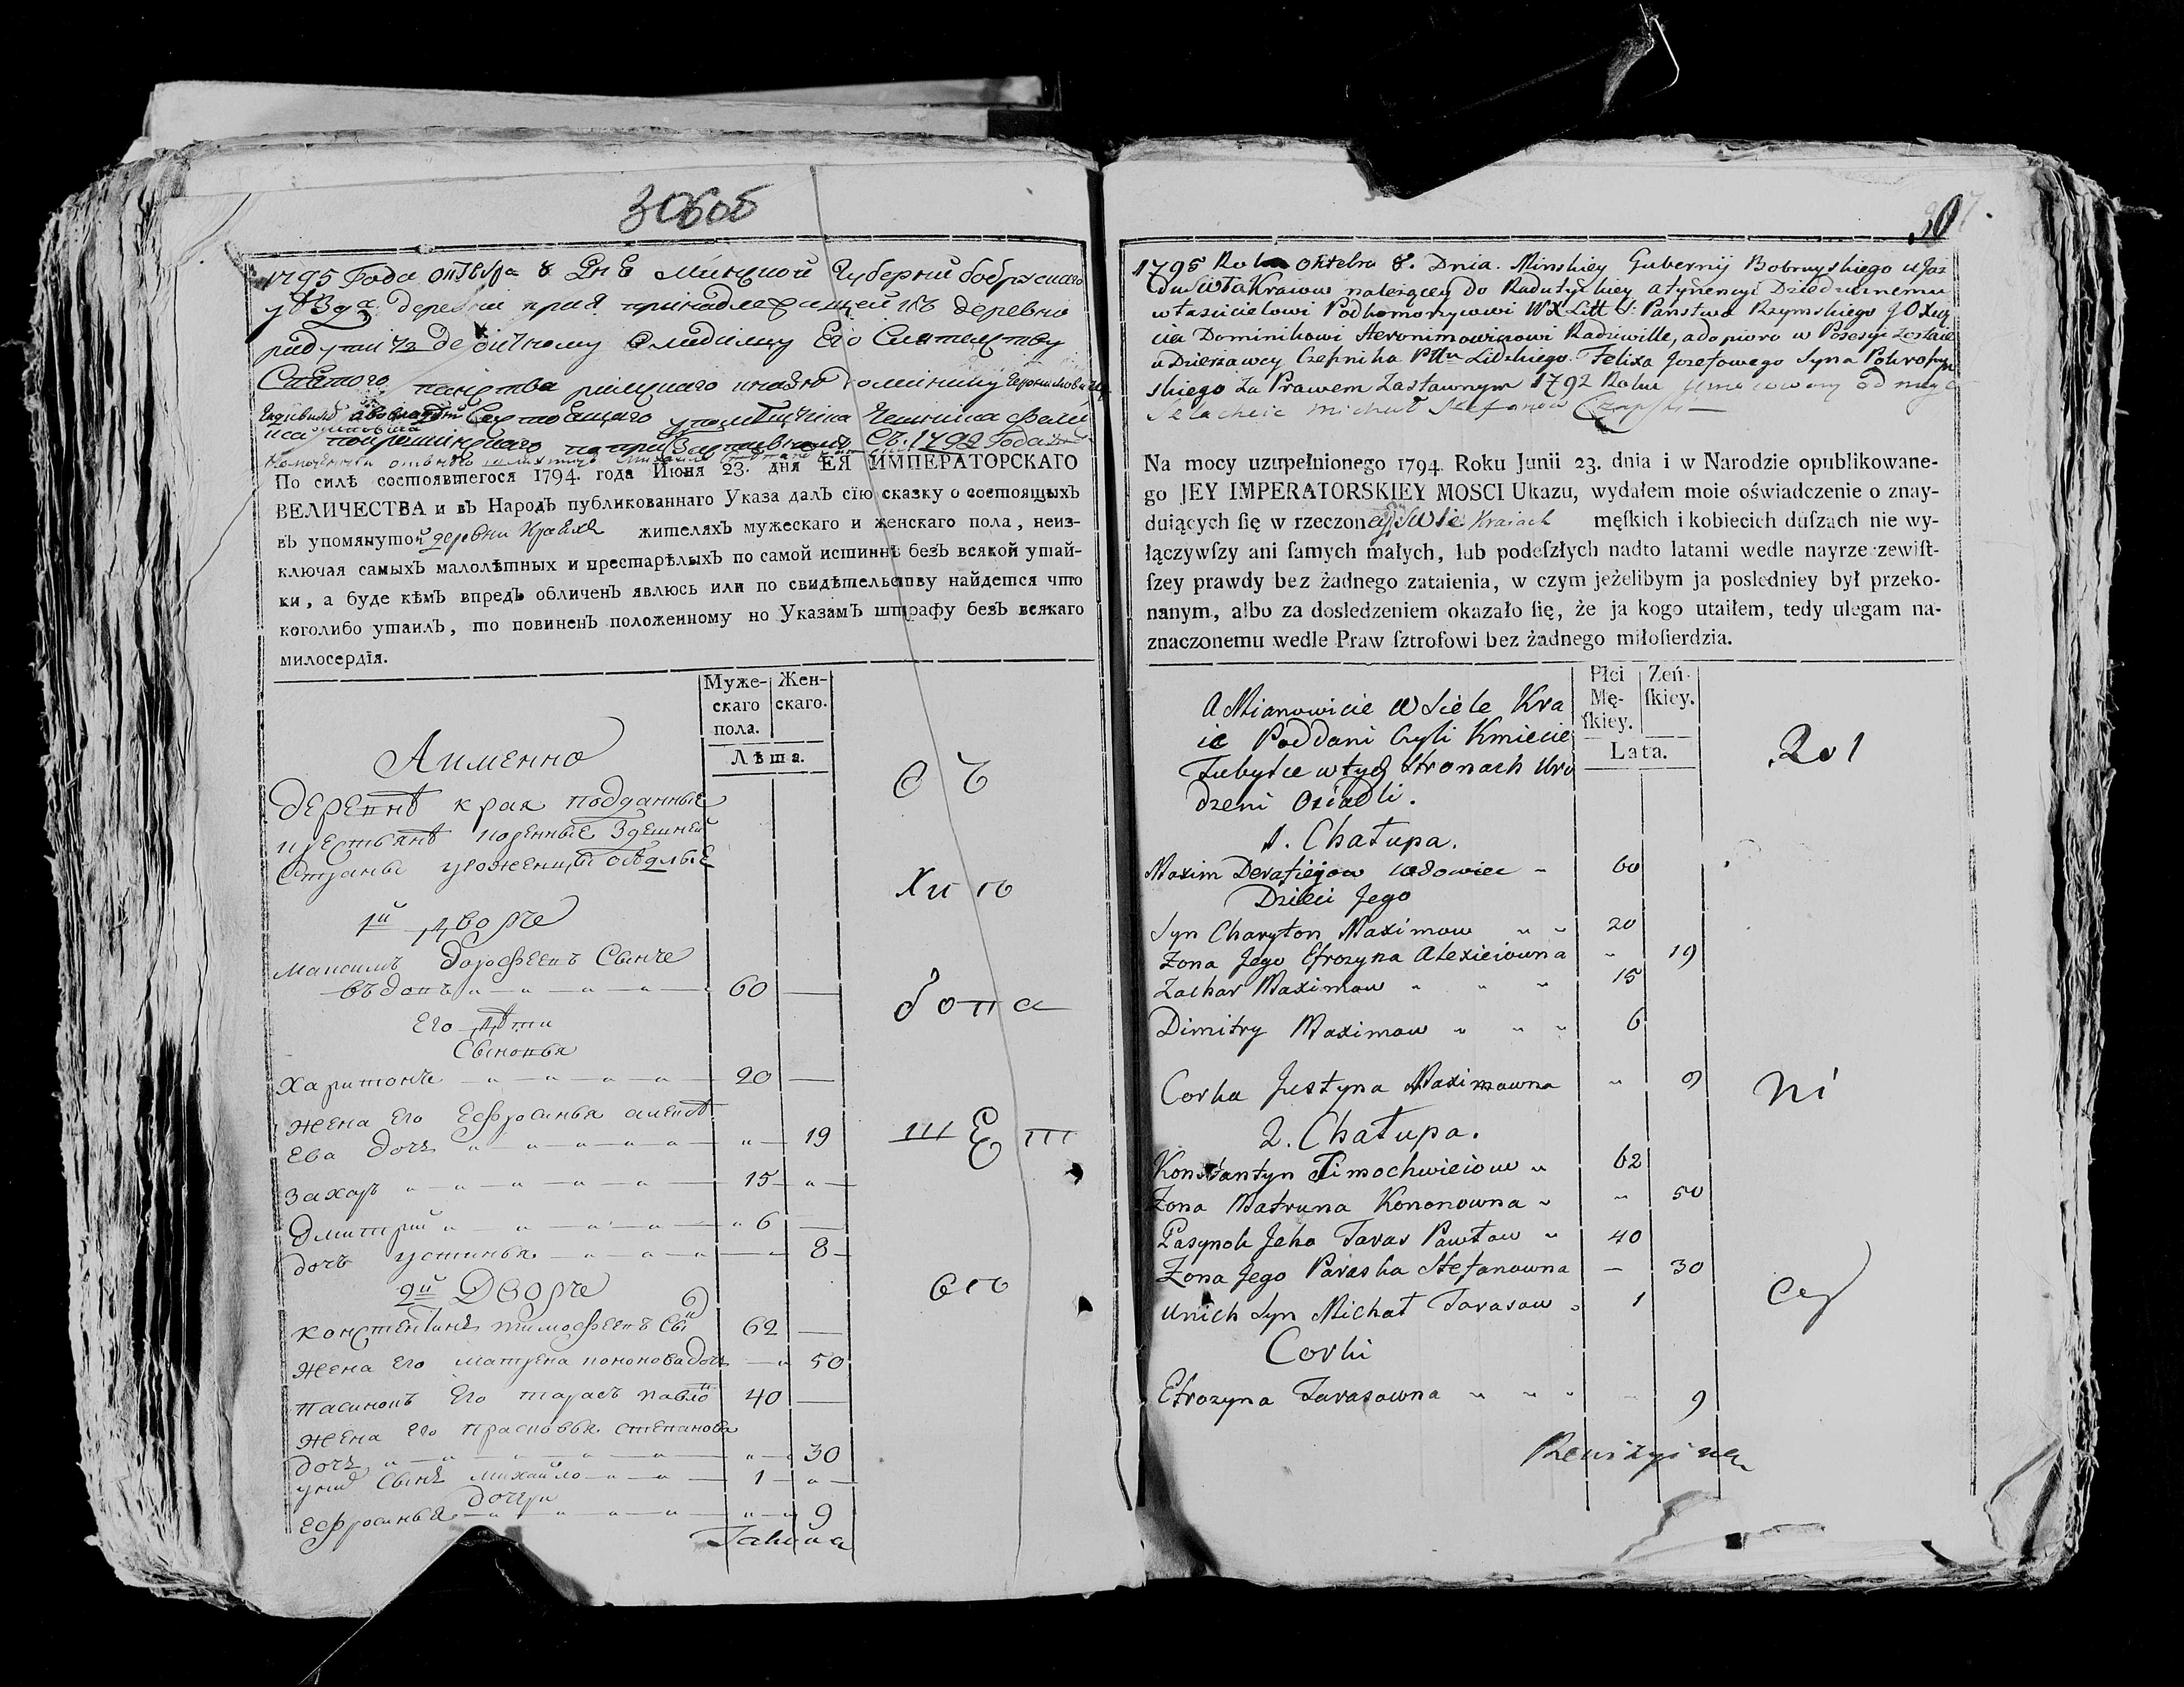 306об
1795 Года октября 8 Дня Минской Губернии бобруского
уѣзда деревни края принадлежащей къ деревне
радутичъ дедичному владѣлцу Его Сиятелству
Святого панства римского князю доминику
По силѣ состоявшегося 1794. года Июня 23. дня ЕЯ ИМПЕРАТОРСКАГО
ВЕЛИЧЕСТВА и въ Народъ публикованнаго Указа далъ сїю сказку о состоящыхъ
въ упомянутой деревни Краяхъ жителяхъ мужескаго и женскаго пола, неиз-
ключая самыхъ малолѣтных и престарѣлыхъ по самой истиннѣ безъ всякой утай-
ки, а буде кѣмъ впредь обличенъ явлюсь или по свидѣтельству найдется что
коголибо утаилъ, то повиненъ положенному но Указамъ штрафу безъ всякаго
милосердїя.
Муже-
скаго
пола.
Жен-
скаго.
Лѣта.
А именно
деревнѣ края подданные
Страны уроженцы осѣдлые
1й дворъ
Максимъ дорофеевъ Сынъ
вдовъ 60
Его дѣти
Сыновья
Харитонъ 20
Жена Его Ефросинья алексѣ
ева дочь 19
Захар 15
Дмитрий 6
дочь устинья 8
2й Дворъ
константинъ тимофеевъ Сы 62
Жена Его матрена кононова дочь 50
пасинокъ Его тарасъ павло 40
Жена Его прасковья степанова
дочь 30
у них Сынъ михайло 1
дочери
Ефросинья 9
307.
1795 Roku Oktebra 8. Dnia. Minskiey Gubernij Bobruyskiego ujaz
du Siła Kraiow należącey do Radutyckiey atynencyi Dziedzicznemu
właścicielowi Podkomorzywi WX Litt S: Państwa Rzymskiego JOXię
cia Dominikowi Heronimowiczowi Radziwille, a dopioro w Posesyi zostaie
u Dzierżawcy Czesnika Pttu Lidzkiego Felixa Jozefowego Syna Pokroszyn
skiego za Prawem zastawnym 1792 Roku
Szlachcic Michał Stefanow
Na mocy uzupełnionego 1794. Roku Junii 23. dnia i w Narodzie opublikowane-
go JEY IMPERATORSKIEY MOSCI Ukazu, wydałem moie oświadczenie o znay-
duiących ſię w rzeczoney Siele Kraiach męſkich i kobiecich duſzach nie wy-
łączywſzy ani ſamych małych, lub podeſzłych nadto latami wedle nayrzezewiſt-
ſzey prawdy bez żadnego zataienia, w czym jeżelibym ja posledniey był przeko-
nanym, albo za dosledzeniem okazało ſię, że ja kogo utaiłem, tedy ulegam na-
znaczonemu wedle Praw ſztrofowi bez żadnego miłoſierdzia.
Płci
Mę-
ſkiey.
Zeń-
ſkiey.
Lata.
A Mianowicie w Siele Kra
ie Poddani Czyli Kmiecie
Tubylce w tych stronach Uro
dzeni Osiadli.
1. Chałupa.
Maxim Derafiejow wdowiec 60
Dzieci Jego
Syn Charyton Maximow 20
Zona Jego Efrozyna Alexieiowna 19
Zachar Maximow 15
Dimitry Maximow 6
Corka Justyna Maximowna 9
2. Chałupa.
Konstantyn Timochwieiow 62
Zona Matruna Kononowna 50
Pasynok Jeho Taras Pawłow 40
Zona Jego Paraska Stefanowna 30
Unich Syn Michał Tarasow 1
Corki
Efrozyna Tarasowna 9